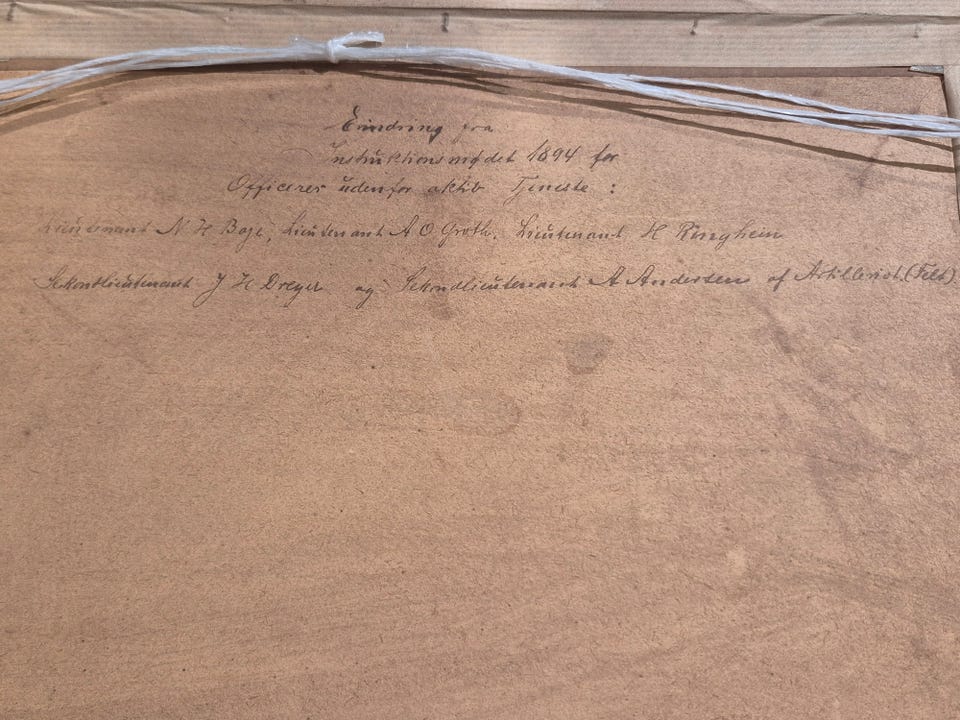 Erindring fra
Instruktionsmødet 1894 for
Officerer udenfor aktiv Tjeneste :
Lieutenant N H Boje, Lieutenant A O Groth, Lieutenant H Ringheim
Sekondlieutenant J H Dreyer og Sekondlieutenant A Andersen af Artilleriet (Felt)